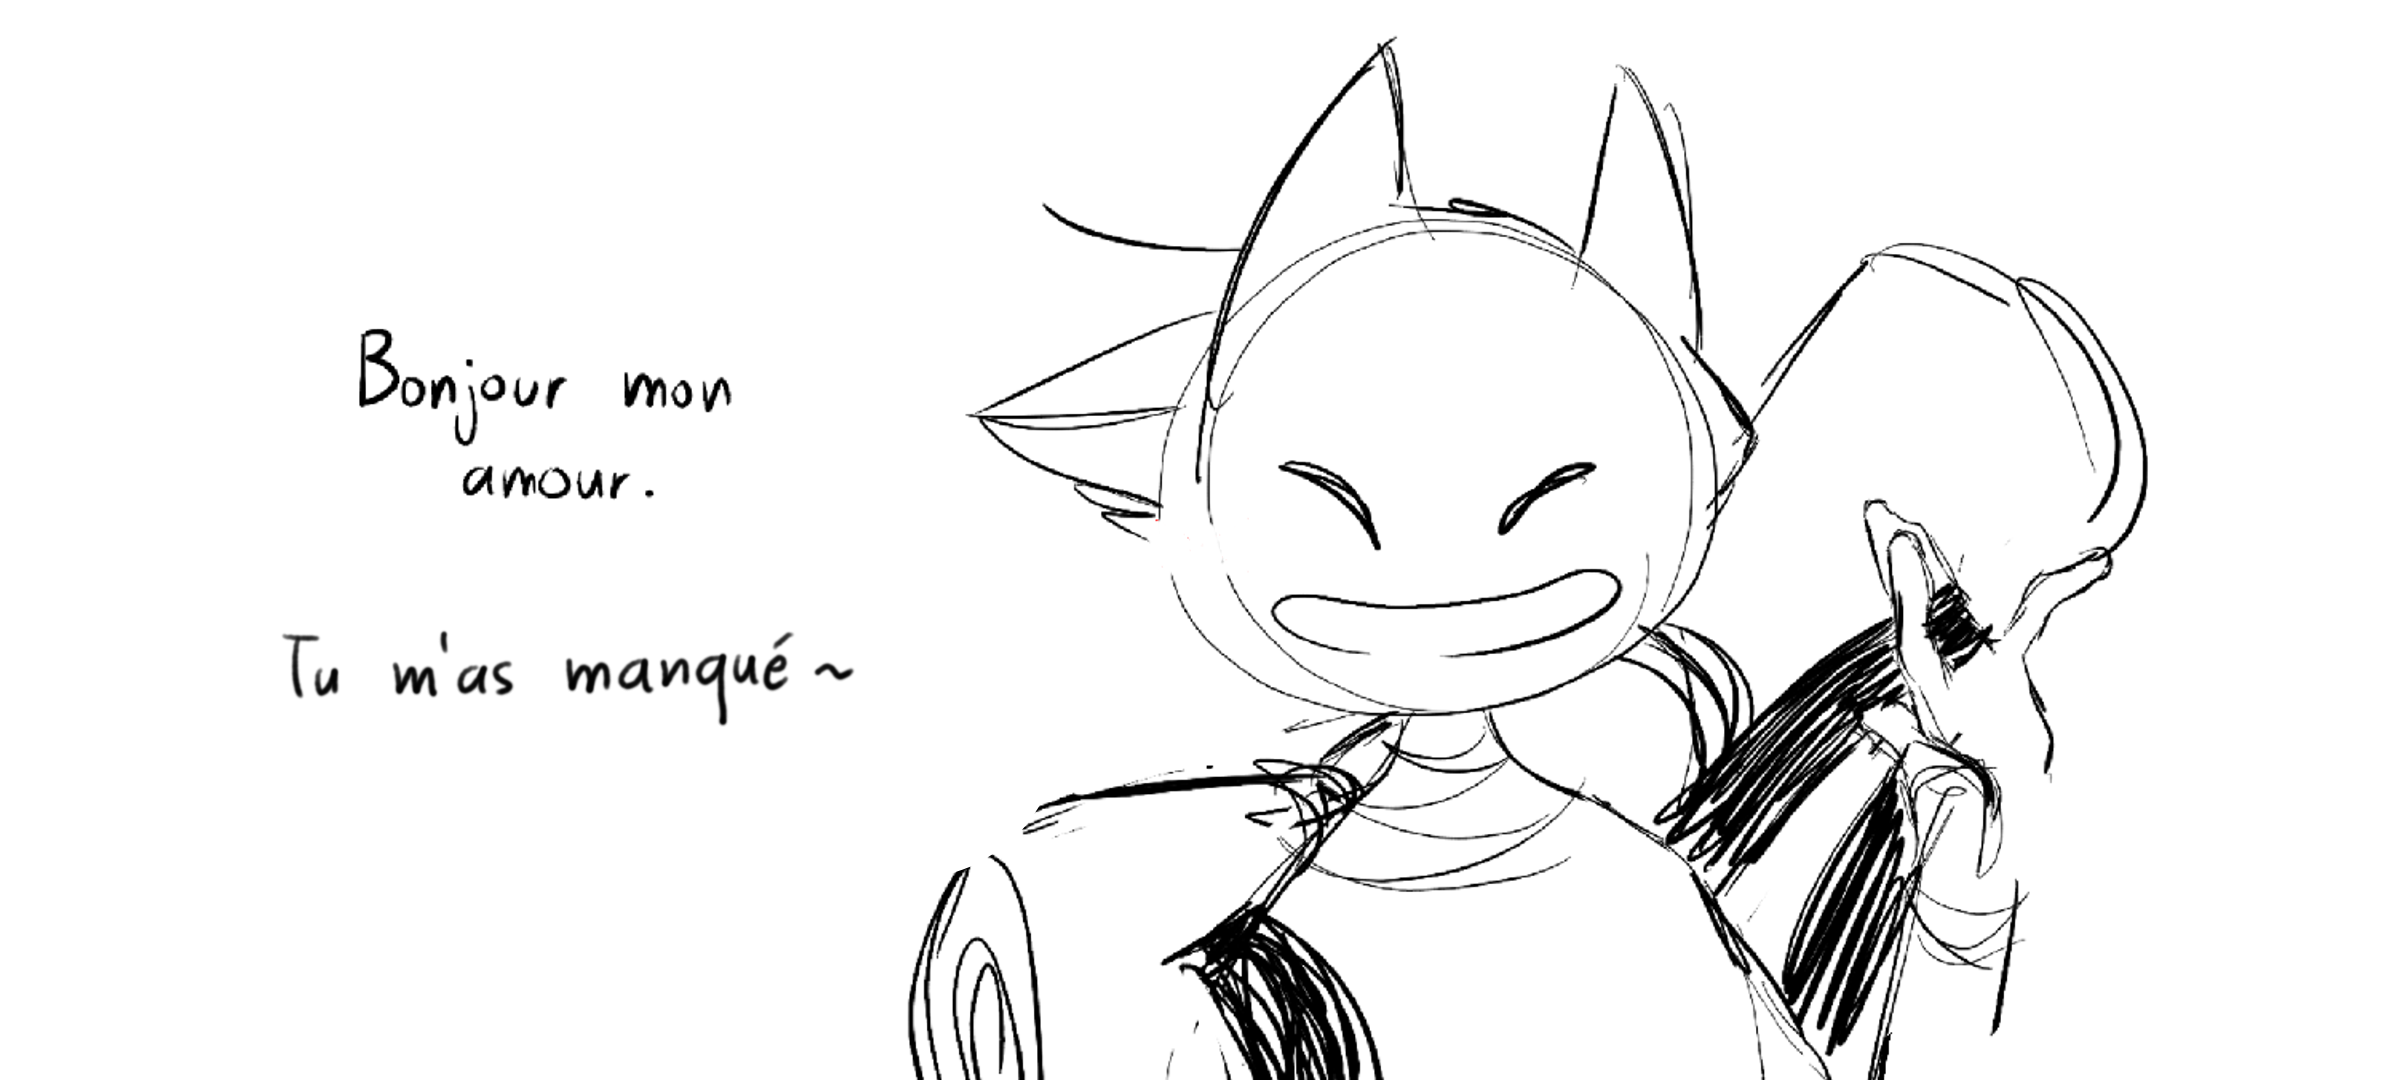 Bonjour mon
amour.
Tu m'as manqué ~